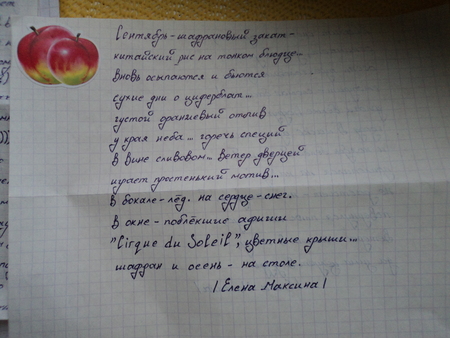 Сентябрь - шафрановый закат -
китайский рис на тонком блюдце...
вновь осыпаются и бьются
сухие дни о циферблат...
густой оранжевый отлив
у края неба... горечь специй
в вине сливовом... Ветер дверцей
играет простенький мотив...
В бокале - лёд. на сердце - снег.
В окне - поблёкшие афиши
"Cirque du Soleil", цветные крыши...
шафран и осень - на столе.
/Елена Максина/